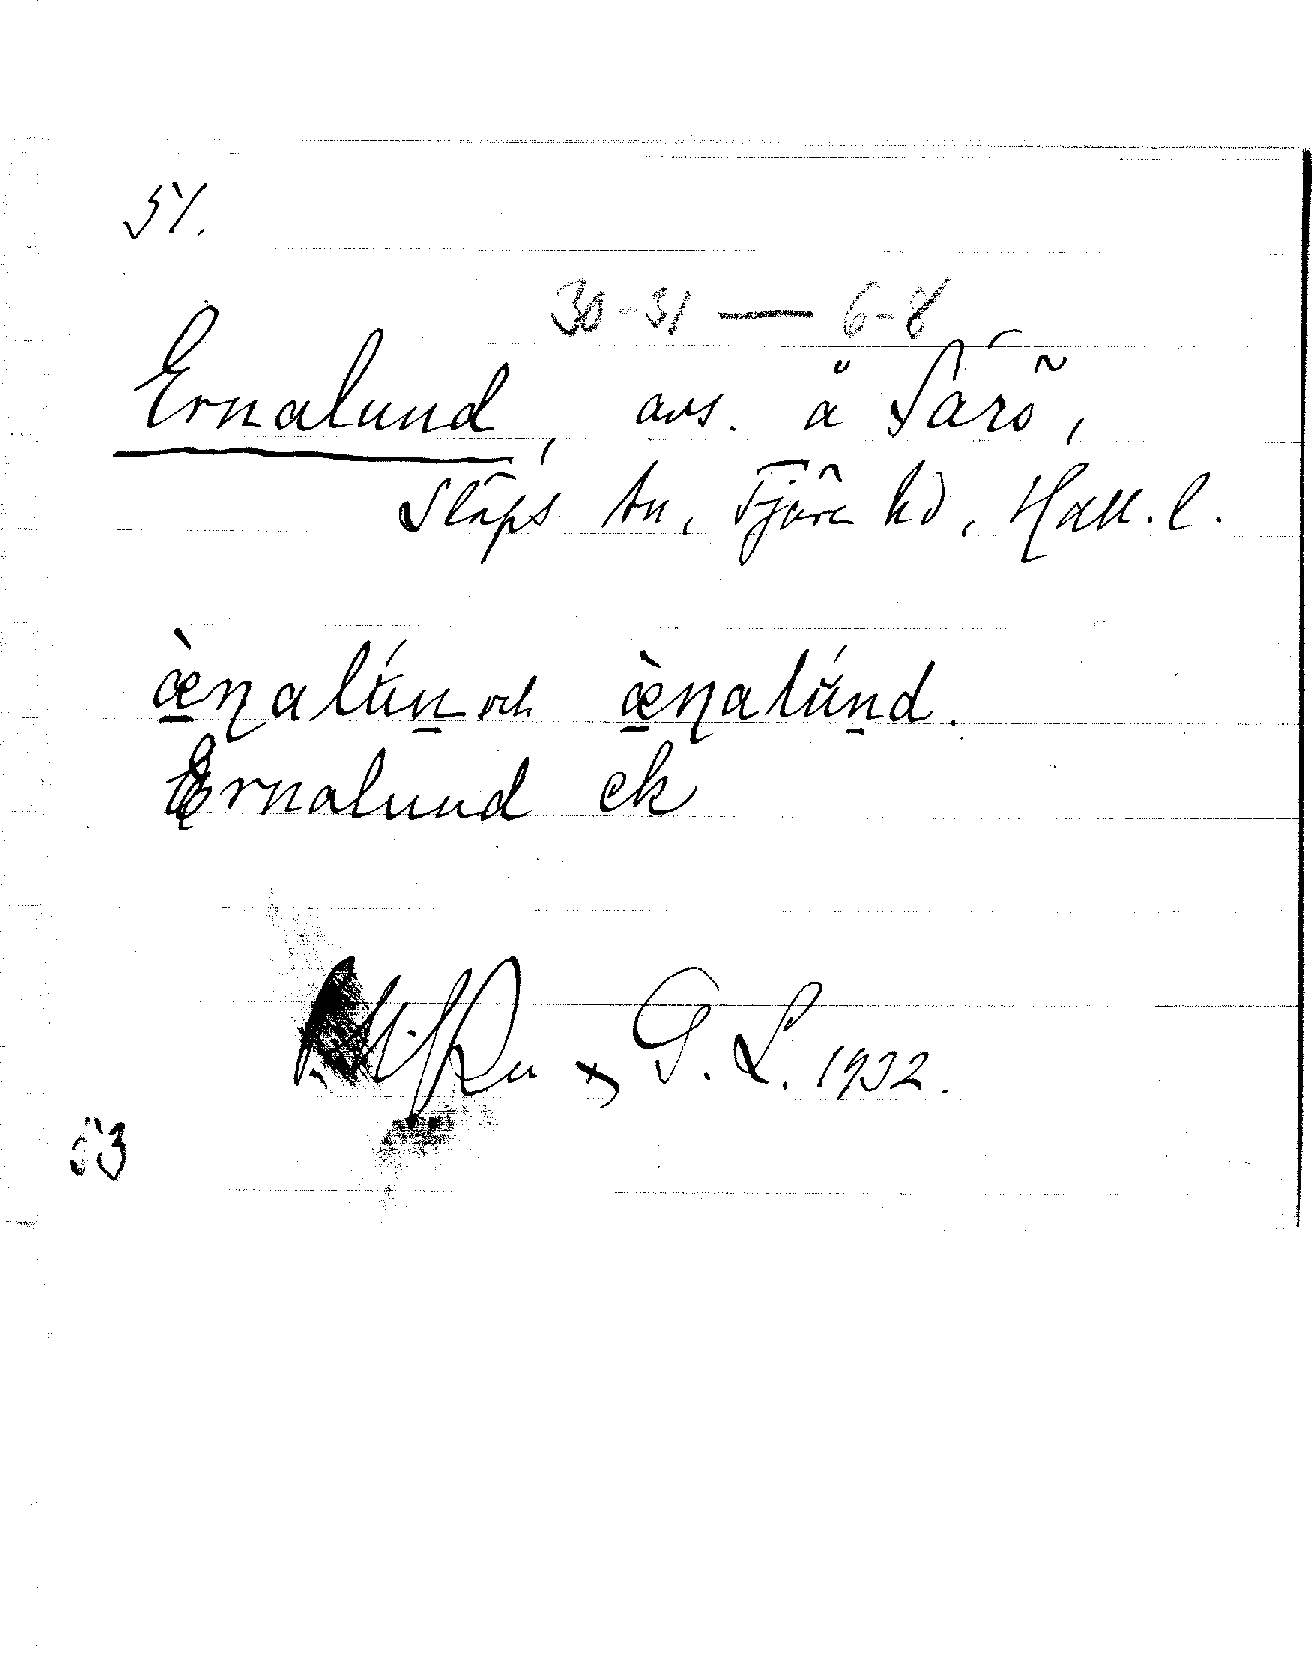 51.
30-31 — 6-8
Ernalund, avs. å Särö,
Släps sn, Fjäre hd, Hall. l.
æ̀ṇalun och æ̀ṇalund.
Ernalund ek
G. L. 1932.
53